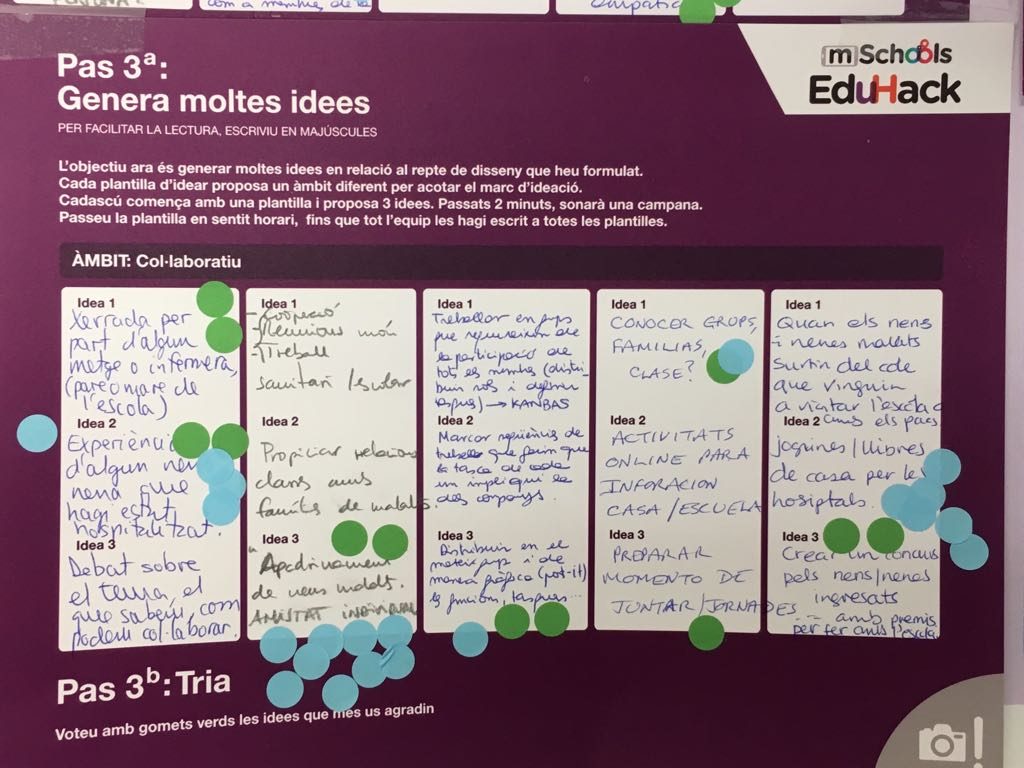 com a membres de la
empatia
Pas 3ª:
Genera moltes idees
PER FACILITAR LA LECTURA, ESCRIVIU EN MAJÚSCULES
mSchools
EduHack
L'objectiu ara és generar moltes idees en relació al repte de disseny que heu formulat.
Cada plantilla d'idear proposa un àmbit diferent per acotar el marc d'ideació.
Cadascú comença amb una plantilla i proposa 3 idees. Passats 2 minuts, sonarà una campana.
Passeu la plantilla en sentit horari, fins que tot l'equip les hagi escrit a totes les plantilles.
ÀMBIT: Col·laboratiu
Idea 1
Xerrada per
part d'algun
metge o infermera,
(pare o mare de
l'escola)
Idea 2
Experiènci
d'algun nen
nena que
hagi estat
hospitalitzat.
Idea 3
Debat sobre
el tema, el
que sabem, com
podem col·laborar.
Idea 1
- Cooperació
- Reunions món
- Treball
sanitari / escolar
Idea 2
Propiciar relacions
clars amb
famílies de malalts.
Idea 3
Apadrinament
de nens malalt.
AMISTAT INDIVIDUAL
Idea 1
Treballar en grups
que requereixin de
la participació de
tots els membres (distri-
buir rols i definir
tasques) → KANBAS
Idea 2
Marcar seqüències de
treball que facin que
la tasca de cada
un impliqui la
dels companys.
Idea 3
Distribuir en el
mateix grup i de
manera gràfica (post-it)
les funcions, tasques...
Idea 1
CONOCER GRUPS,
FAMILIAS,
CLASE?
Idea 2
ACTIVITATS
ONLINE PARA
INFORACION
CASA/ESCUELA
Idea 3
PREPARAR
MOMENTO DE
JUNTAR/JORNADES
Idea 1
Quan els nens
i nenes malalts
surtin del cole
que vinguin
a visitar l'escola
Idea 2 amb els pares
joguines/llibres
de casa per les
hosiptals.
Idea 3
Crear un concurs
pels nens/nenes
ingresats
... amb premis
per fer amb l'escola
Pas 3ᵇ: Tria
Voteu amb gomets verds les idees que més us agradin